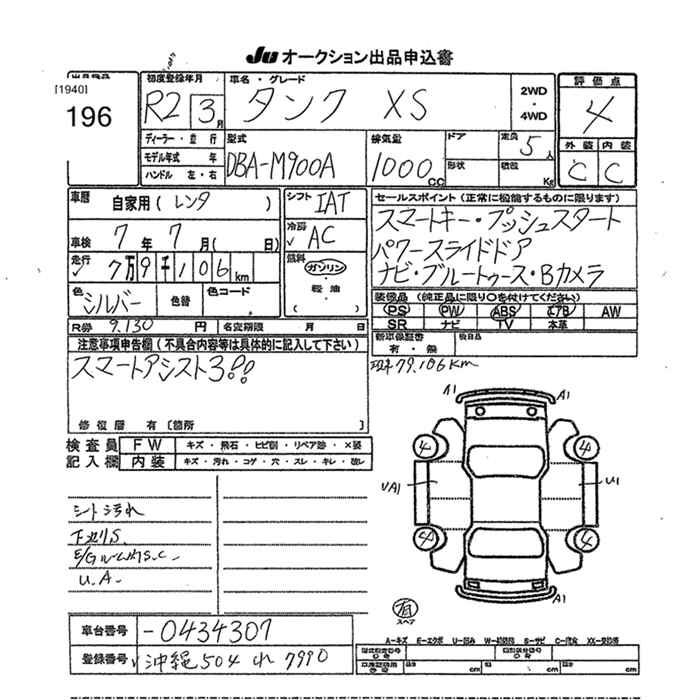 JU オークション出品申込書
出品番号
[1940]
196
初度登録年月 R2 3月
車名・グレード タンク XS
2WD・4WD
評価点 4
外装 内装
C C
ディーラー・並行
モデル年式 年
ハンドル 左・右
型式 DBA-M900A
排気量 1000cc
ドア
形状
定員 5人
積載 Kg
車歴 自家用(レンタ )
車検 7年7月( 日)
走行 7万9千106km
色 シルバー 色替 色コード
シフト IAT
冷房 AC
燃料 ガソリン・軽油・( )
セールスポイント(正常に機能するものに限ります)
スマートキー・プッシュスタート
パワースライドドア
ナビ・ブルートゥース・Bカメラ
装備品(純正品に限り○を付けてください)
PS PW ABS エアB AW
SR ナビ TV 本革
R券 9.130円 名変期限 月 日
新車保証書 有・無 後日品
注意事項申告欄(不具合内容等は具体的に記入して下さい)
スマートアシスト3!!
修復歴 有〔箇所 〕
現車79.106km
検査員記入欄
FW キズ・飛石・ヒビ割・リペア跡・×要
内装 キズ・汚れ・コゲ・穴・スレ・キレ・破レ
A1 A1
4 4
UA1 U1
4 4
A1
シート汚れ
下廻りS.
E/GルームS.C.
U.A.
有 スペア
車台番号 -0434307
登録番号 沖縄504 れ 7990
A-キズ E-エクボ U-凹み W-補修跡 S-サビ C-腐食 XX-交換済
cm cm